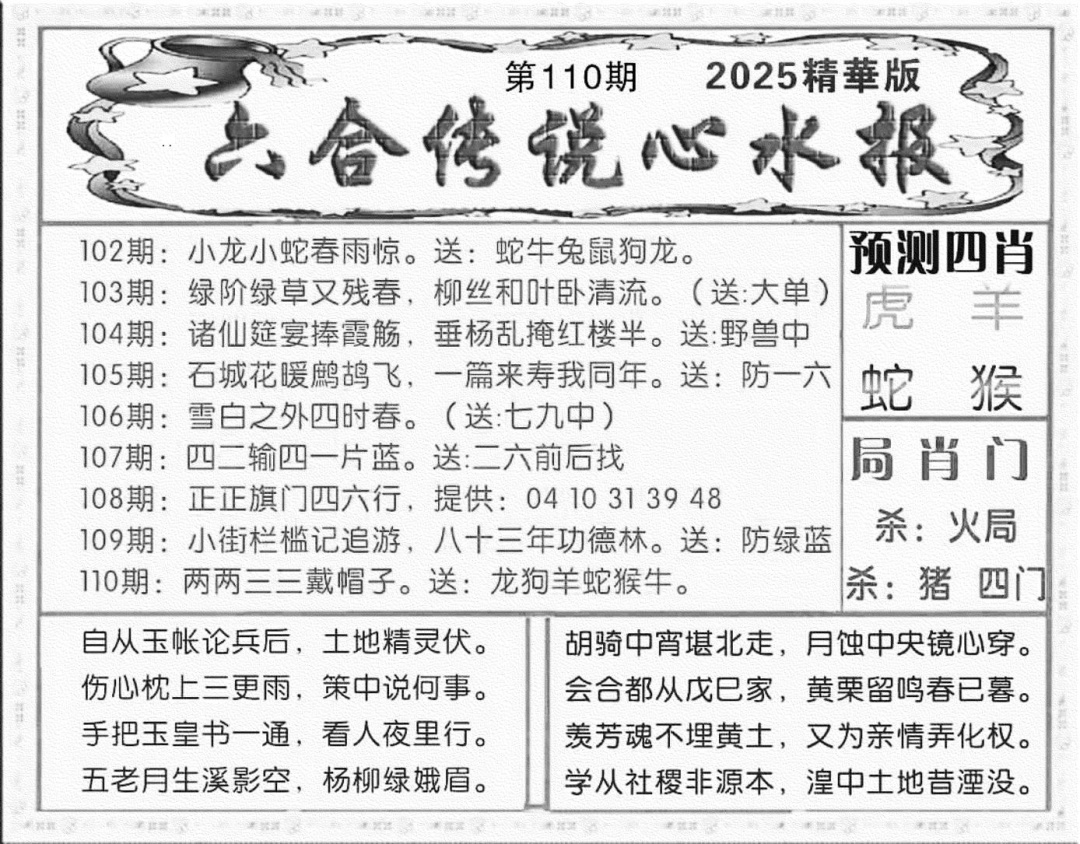 第110期 2025精華版
六合传说心水报
102期：小龙小蛇春雨惊。送：蛇牛兔鼠狗龙。
103期：绿阶绿草又残春，柳丝和叶卧清流。（送:大单）
104期：诸仙筵宴捧霞觞，垂杨乱掩红楼半。送:野兽中
105期：石城花暖鹧鸪飞，一篇来寿我同年。送：防一六
106期：雪白之外四时春。（送:七九中）
107期：四二输四一片蓝。送:二六前后找
108期：正正旗门四六行，提供：04 10 31 39 48
109期：小街栏槛记追游，八十三年功德林。送：防绿蓝
110期：两两三三戴帽子。送：龙狗羊蛇猴牛。
预测四肖
虎 羊
蛇 猴
局肖门
杀：火局
杀：猪 四门
自从玉帐论兵后，土地精灵伏。
伤心枕上三更雨，策中说何事。
手把玉皇书一通，看人夜里行。
五老月生溪影空，杨柳绿娥眉。
胡骑中宵堪北走，月蚀中央镜心穿。
会合都从戊巳家，黄栗留鸣春已暮。
羡芳魂不埋黄土，又为亲情弄化权。
学从社稷非源本，湟中土地昔湮没。